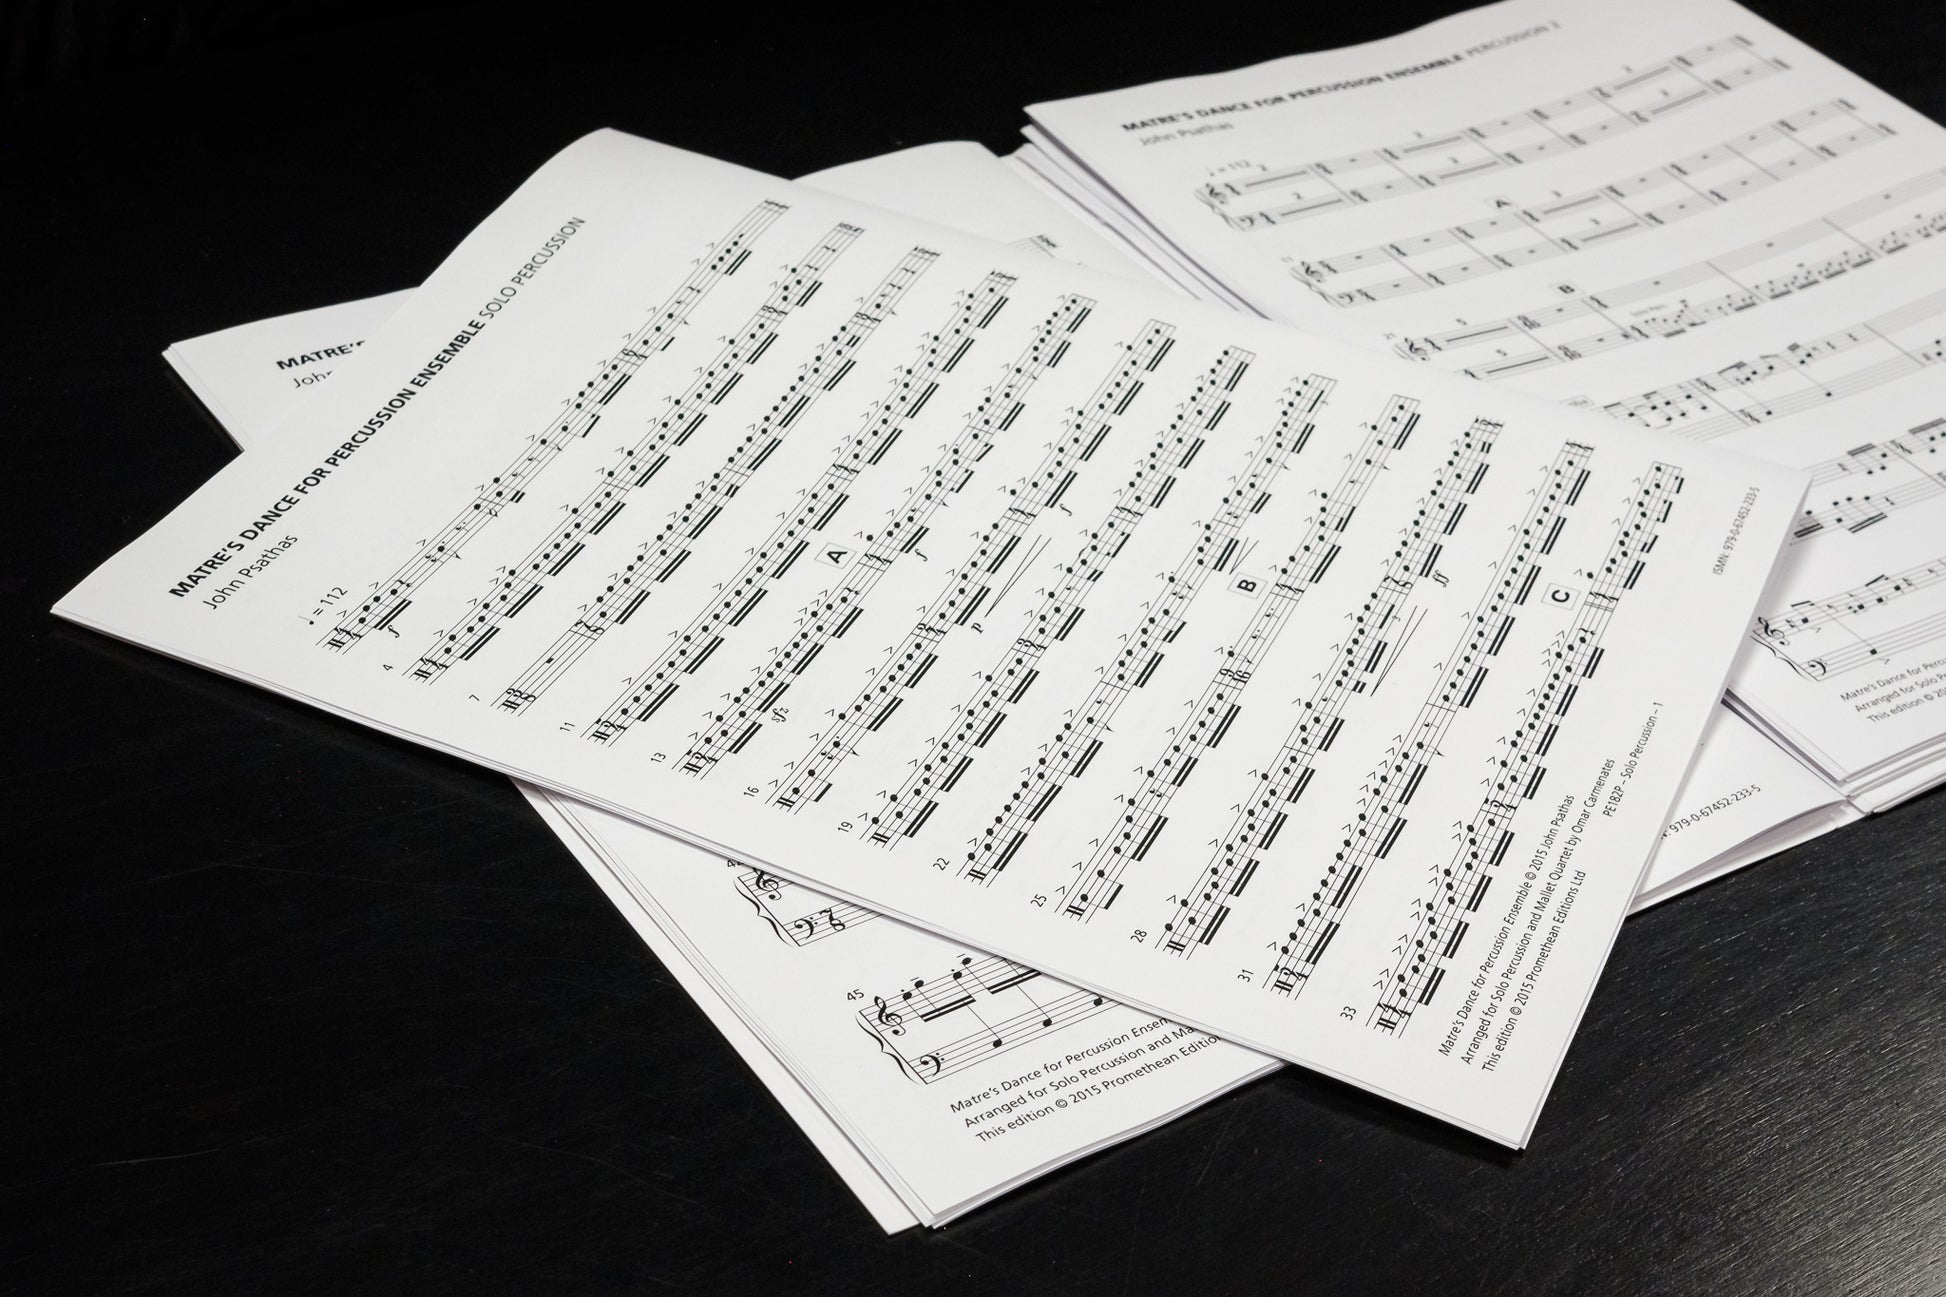 MATRE'S DANCE FOR PERCUSSION ENSEMBLE SOLO PERCUSSION
John Psathas
♩ = 112
f
4
7
11
13
sfz
A
f
16
p
f
19
22
25
B
28
ff
31
33
C
Matre's Dance for Percussion Ensemble © 2015 John Psathas
Arranged for Solo Percussion and Mallet Quartet by Omar Carmenates
This edition © 2015 Promethean Editions Ltd
PE182P – Solo Percussion – 1
ISMN: 979-0-67452-233-5
MATRE'S DANCE FOR PERCUSSION ENSEMBLE PERCUSSION 2
John Psathas
♩ = 112
2
2
3
3
2
2
11
A
3
3
21
B
5
5
Matre's Dance for Percu
Arranged for Solo P
This edition © 20
MATRE'S
John
42
45
Matre's Dance for Percussion Ensem
Arranged for Solo Percussion and Ma
This edition © 2015 Promethean Editio
979-0-67452-233-5